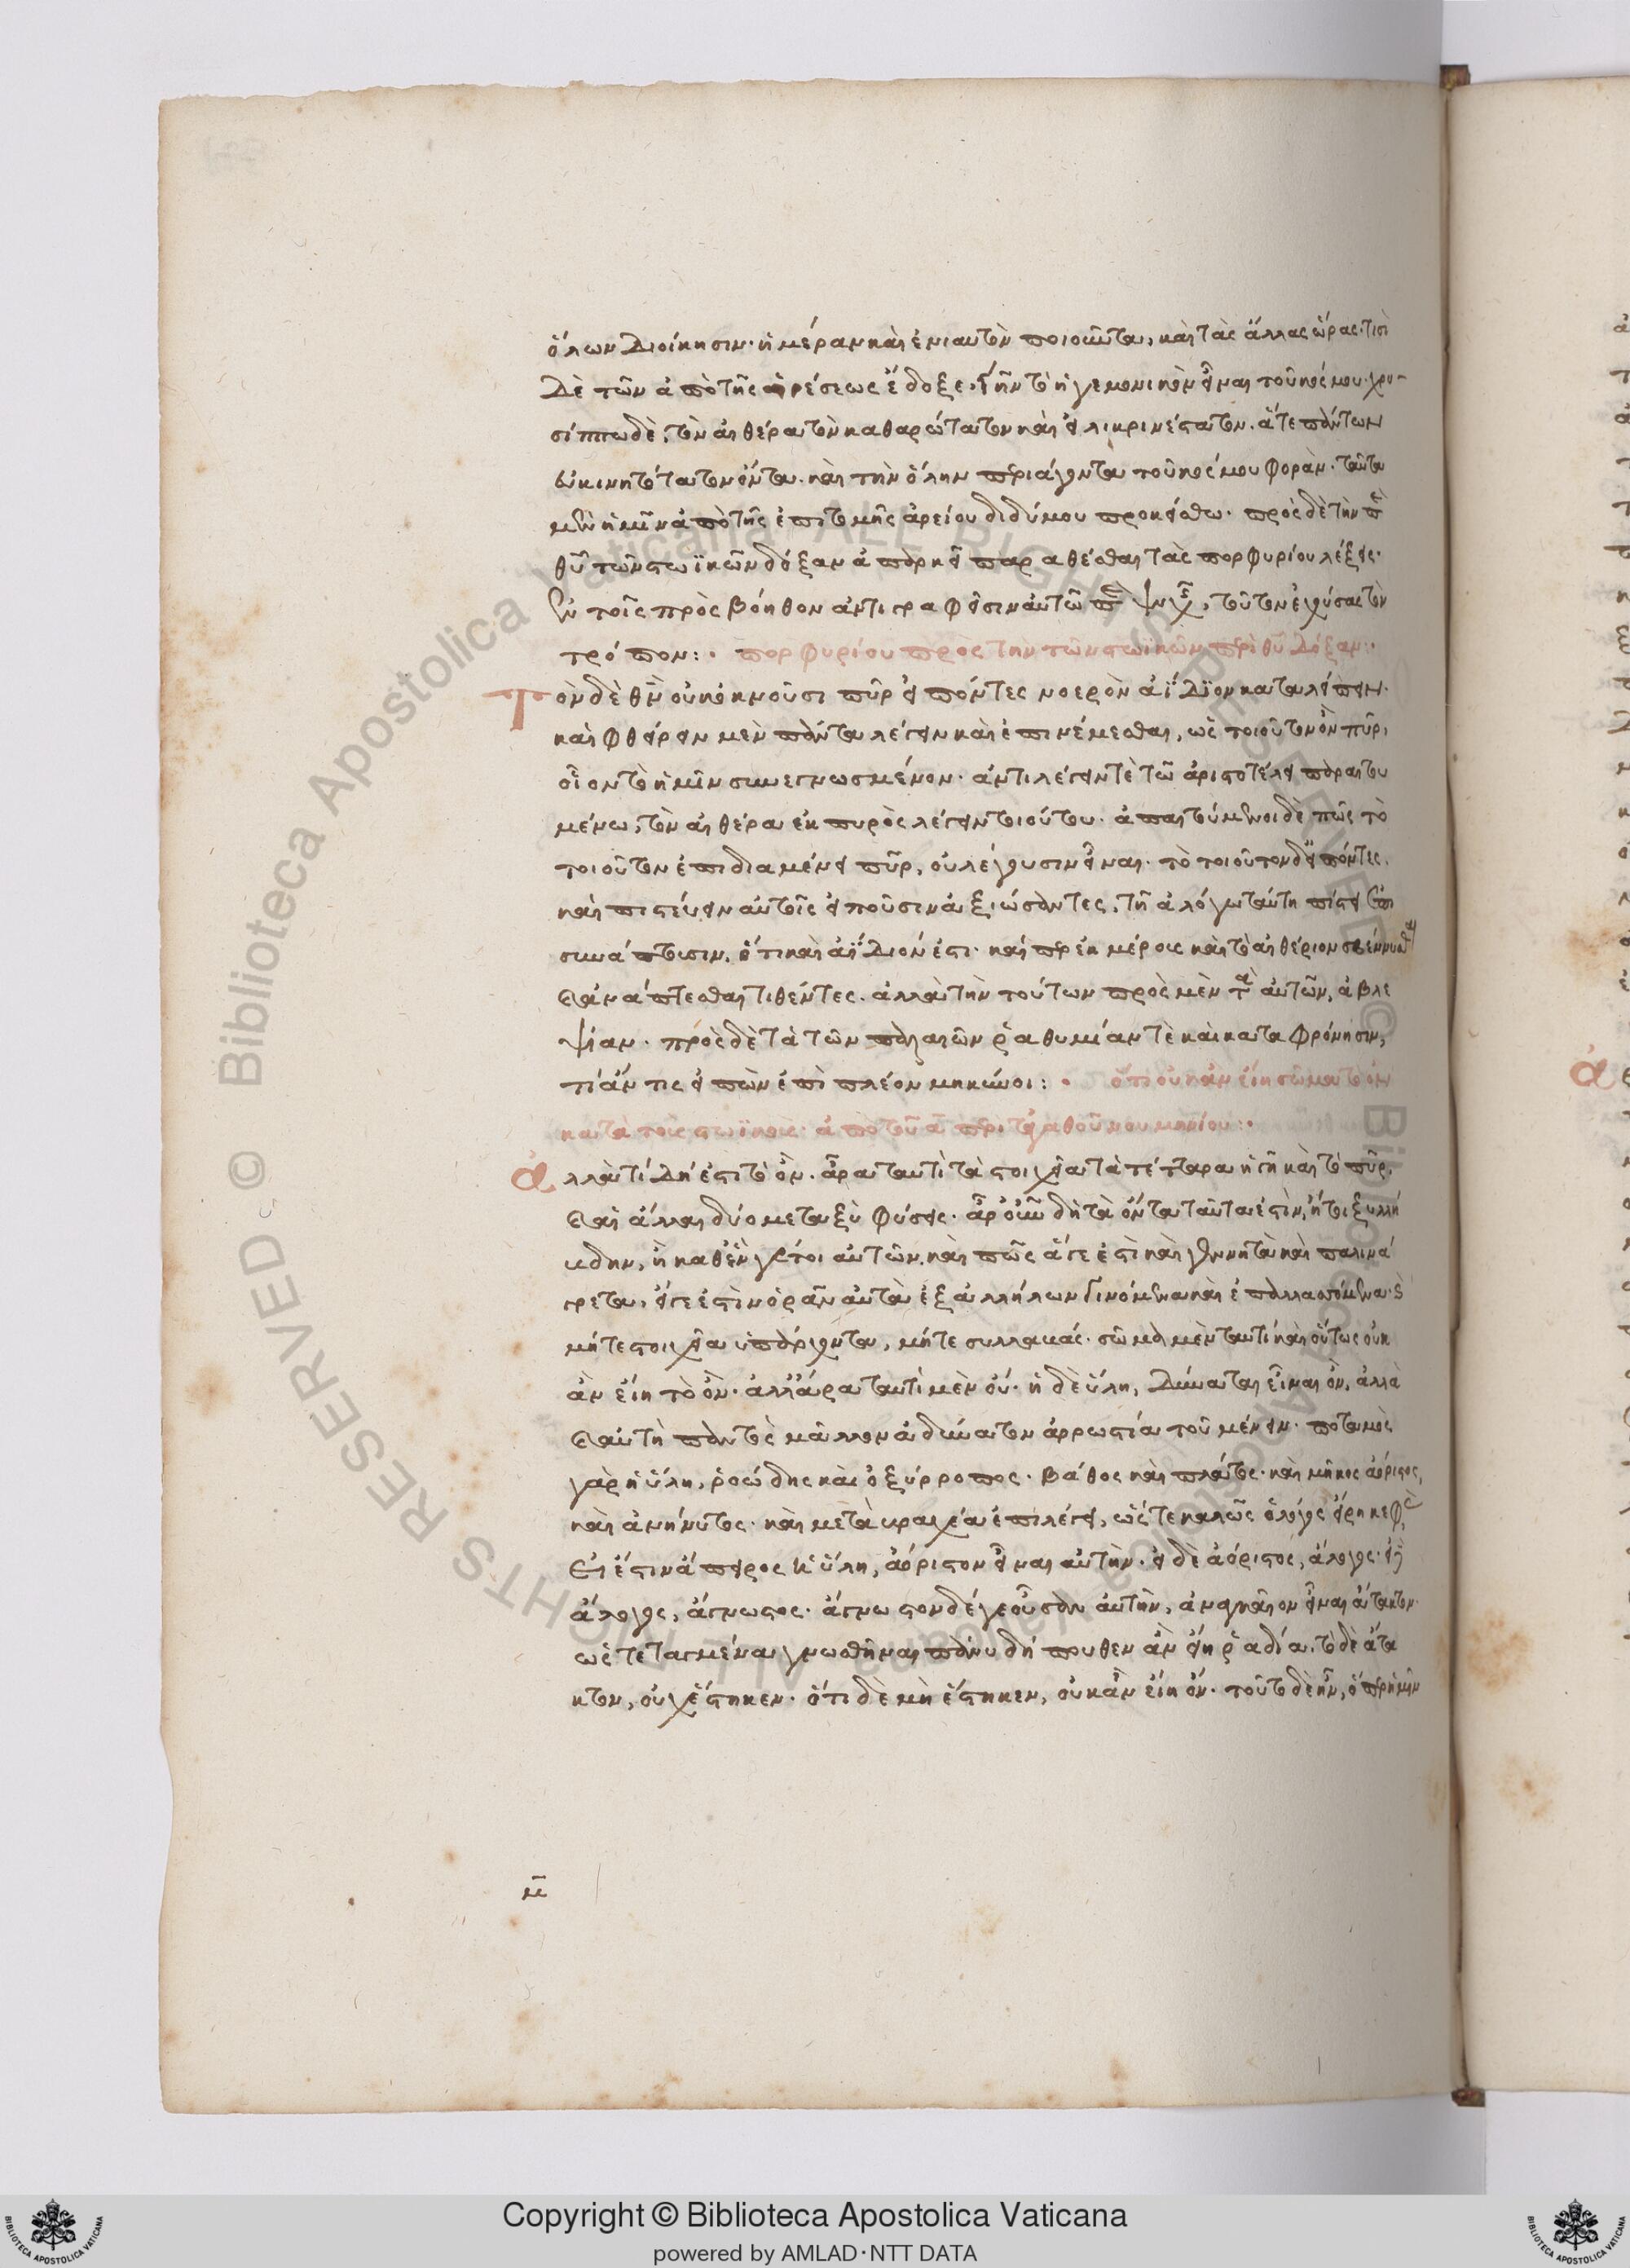 ὅλων διοίκησιν· ἡμέραν καὶ ἐνιαυτὸν ποιοῦντα, καὶ τὰς ἄλλας ὥρας· τισὶ
δὲ τῶν ἀπὸ τῆς αἱρέσεως ἔδοξε, γῆν τὸ ἡγεμονικὸν εἶναι τοῦ κόσμου· χρυ-
σίππω δὲ, τὸν αἰθέρα τὸν καθαρώτατον καὶ εἰλικρινέστατον. ἅτε πάντων
εὐκινητότατον ὄντα. καὶ τὴν ὅλην περιάγοντα τοῦ κόσμου φορὰν· ταῦτα
μὲν ἡμῖν ἀπὸ τῆς ἐπιτομῆς ἀρείου διδύμου προκείσθω· πρὸς δὲ τὴν περὶ
θεοῦ τῶν στωϊκῶν δόξαν ἀπόχρη καὶ παραθέσθαι τὰς πορφυρίου λέξεις·
ἐν τοῖς πρὸς βόηθον ἀντιγραφεῖσιν αὐτῶ περὶ ψυχῆς, τοῦτον ἐχούσας τὸν
τρόπον: · πορφυρίου πρὸς τὴν τῶν στωϊκῶν περὶ θεοῦ δόξαν:·
Τὸν δὲ θεὸν οὐκ ὀκνοῦσι πῦρ εἰπόντες νοερὸν ἀΐδιον καταλείπειν·
καὶ φθείρειν μὲν πάντα λέγειν καὶ ἐπινέμεσθαι, ὡς τοιοῦτον ὂν πῦρ,
οἷον τὸ ἡμῖν συνεγνωσμένον· ἀντιλέγειν τὲ τῶ ἀριστοτέλει παραιτου
μένω, τὸν αἰθέρα ἐκ πυρὸς λέγειν τοιούτου· ἀπαιτούμενοι δὲ πῶς τὸ
τοιοῦτον ἐπιδιαμένει πῦρ, οὐ λέγουσιν εἶναι· τὸ τοιοῦτον δ' εἰπόντες,
καὶ πιστεύειν αὐτοῖς εἰποῦσιν ἀξιώσαντες, τῆ ἀλόγω ταύτη πίστει ἔτι
συνάπτουσιν, ὅτι καὶ ἀΐδιόν ἐστι· καίπερ ἐκ μέρους καὶ τὸ αἰθέριον σβέννυσθαι
καὶ ἀνάπτεσθαι τιθέντες. ἀλλὰ τὴν τούτων πρὸς μὲν τὰ αὐτῶν, ἀβλε
ψίαν· πρὸς δὲ τὰ τῶν παλαιῶν ῥαθυμίαν τὲ καὶ καταφρόνησιν,
τί ἄν τις εἰπὼν ἐπὶ πλέον μηκύνοι: · ὅτι οὐκ ἂν εἴη σῶμα τὸ ὂν
κατὰ τοὺς στωϊκοὺς· ἀπὸ τοῦ α περὶ τἀγαθοῦ νουμηνίου:·
ἀλλὰ τί δή ἐστι τὸ ὄν. ἆρα ταυτὶ τὰ στοιχεῖα τὰ τέτταρα ἡ γῆ καὶ τὸ πῦρ,
καὶ αἱ ἄλλαι δύο μεταξὺ φύσεις· ἆρ' οὖν δὴ τὰ ὄντα ταῦτα ἐστὶν, ἤτοι ξυλλή
βδην, ἢ καθ' ἕν γέτοι αὐτῶν. καὶ πῶς ἅ γε ἐστὶ καὶ γεννητὰ καὶ παλινά
γρετα, εἴ γε ἐστὶν ὁρᾶν αὐτὰ ἐξ ἀλλήλων γινόμενα καὶ ἐπαλλασσόμενα· καὶ
μήτε στοιχεῖα ὑπάρχοντα, μήτε συλλαβάς· σῶμα μὲν ταυτὶ καὶ οὕτως οὐκ
ἂν εἴη τὸ ὄν· ἀλλ' ἄρα ταυτὶ μὲν οὐ· ἡ δὲ ὕλη, δύναται εἶναι ὄν, ἀλλὰ
καὶ αὐτὴ παντὸς μᾶλλον ἀδύνατον ἀρρωστία τοῦ μένειν· ποταμὸς
γὰρ ἡ ὕλη, ῥοώδης καὶ ὀξύρροπος· βάθος καὶ πλάτος· καὶ μῆκος ἀόριστος,
καὶ ἀνήνυτος· καὶ μετὰ βραχέα ἐπιλέγει, ὥστε καλῶς ὁ λόγος εἴρηκε φὰς,
εἰ ἔστιν ἄπειρος ἡ ὕλη, ἀόριστον εἶναι αὐτὴν· εἰ δὲ ἀόριστος, ἄλογος· εἰ δὲ
ἄλογος, ἄγνωστος· ἄγνωστον δέ γε οὖσαν αὐτὴν, ἀναγκαῖον εἶναι ἄτακτον·
ὡς τεταγμένα γνωσθῆναι πάνυ δήπουθεν ἂν εἴη ῥαδία, τὸ δὲ ἄτα
κτον, οὐχ ἕστηκεν· ὅτι δὲ μὴ ἕστηκεν, οὐκ ἂν εἴη ὄν· τοῦτο δὲ ἦν, ὅπερ ἡμῖν
μ
Copyright © Biblioteca Apostolica Vaticana
powered by AMLAD·NTT DATA